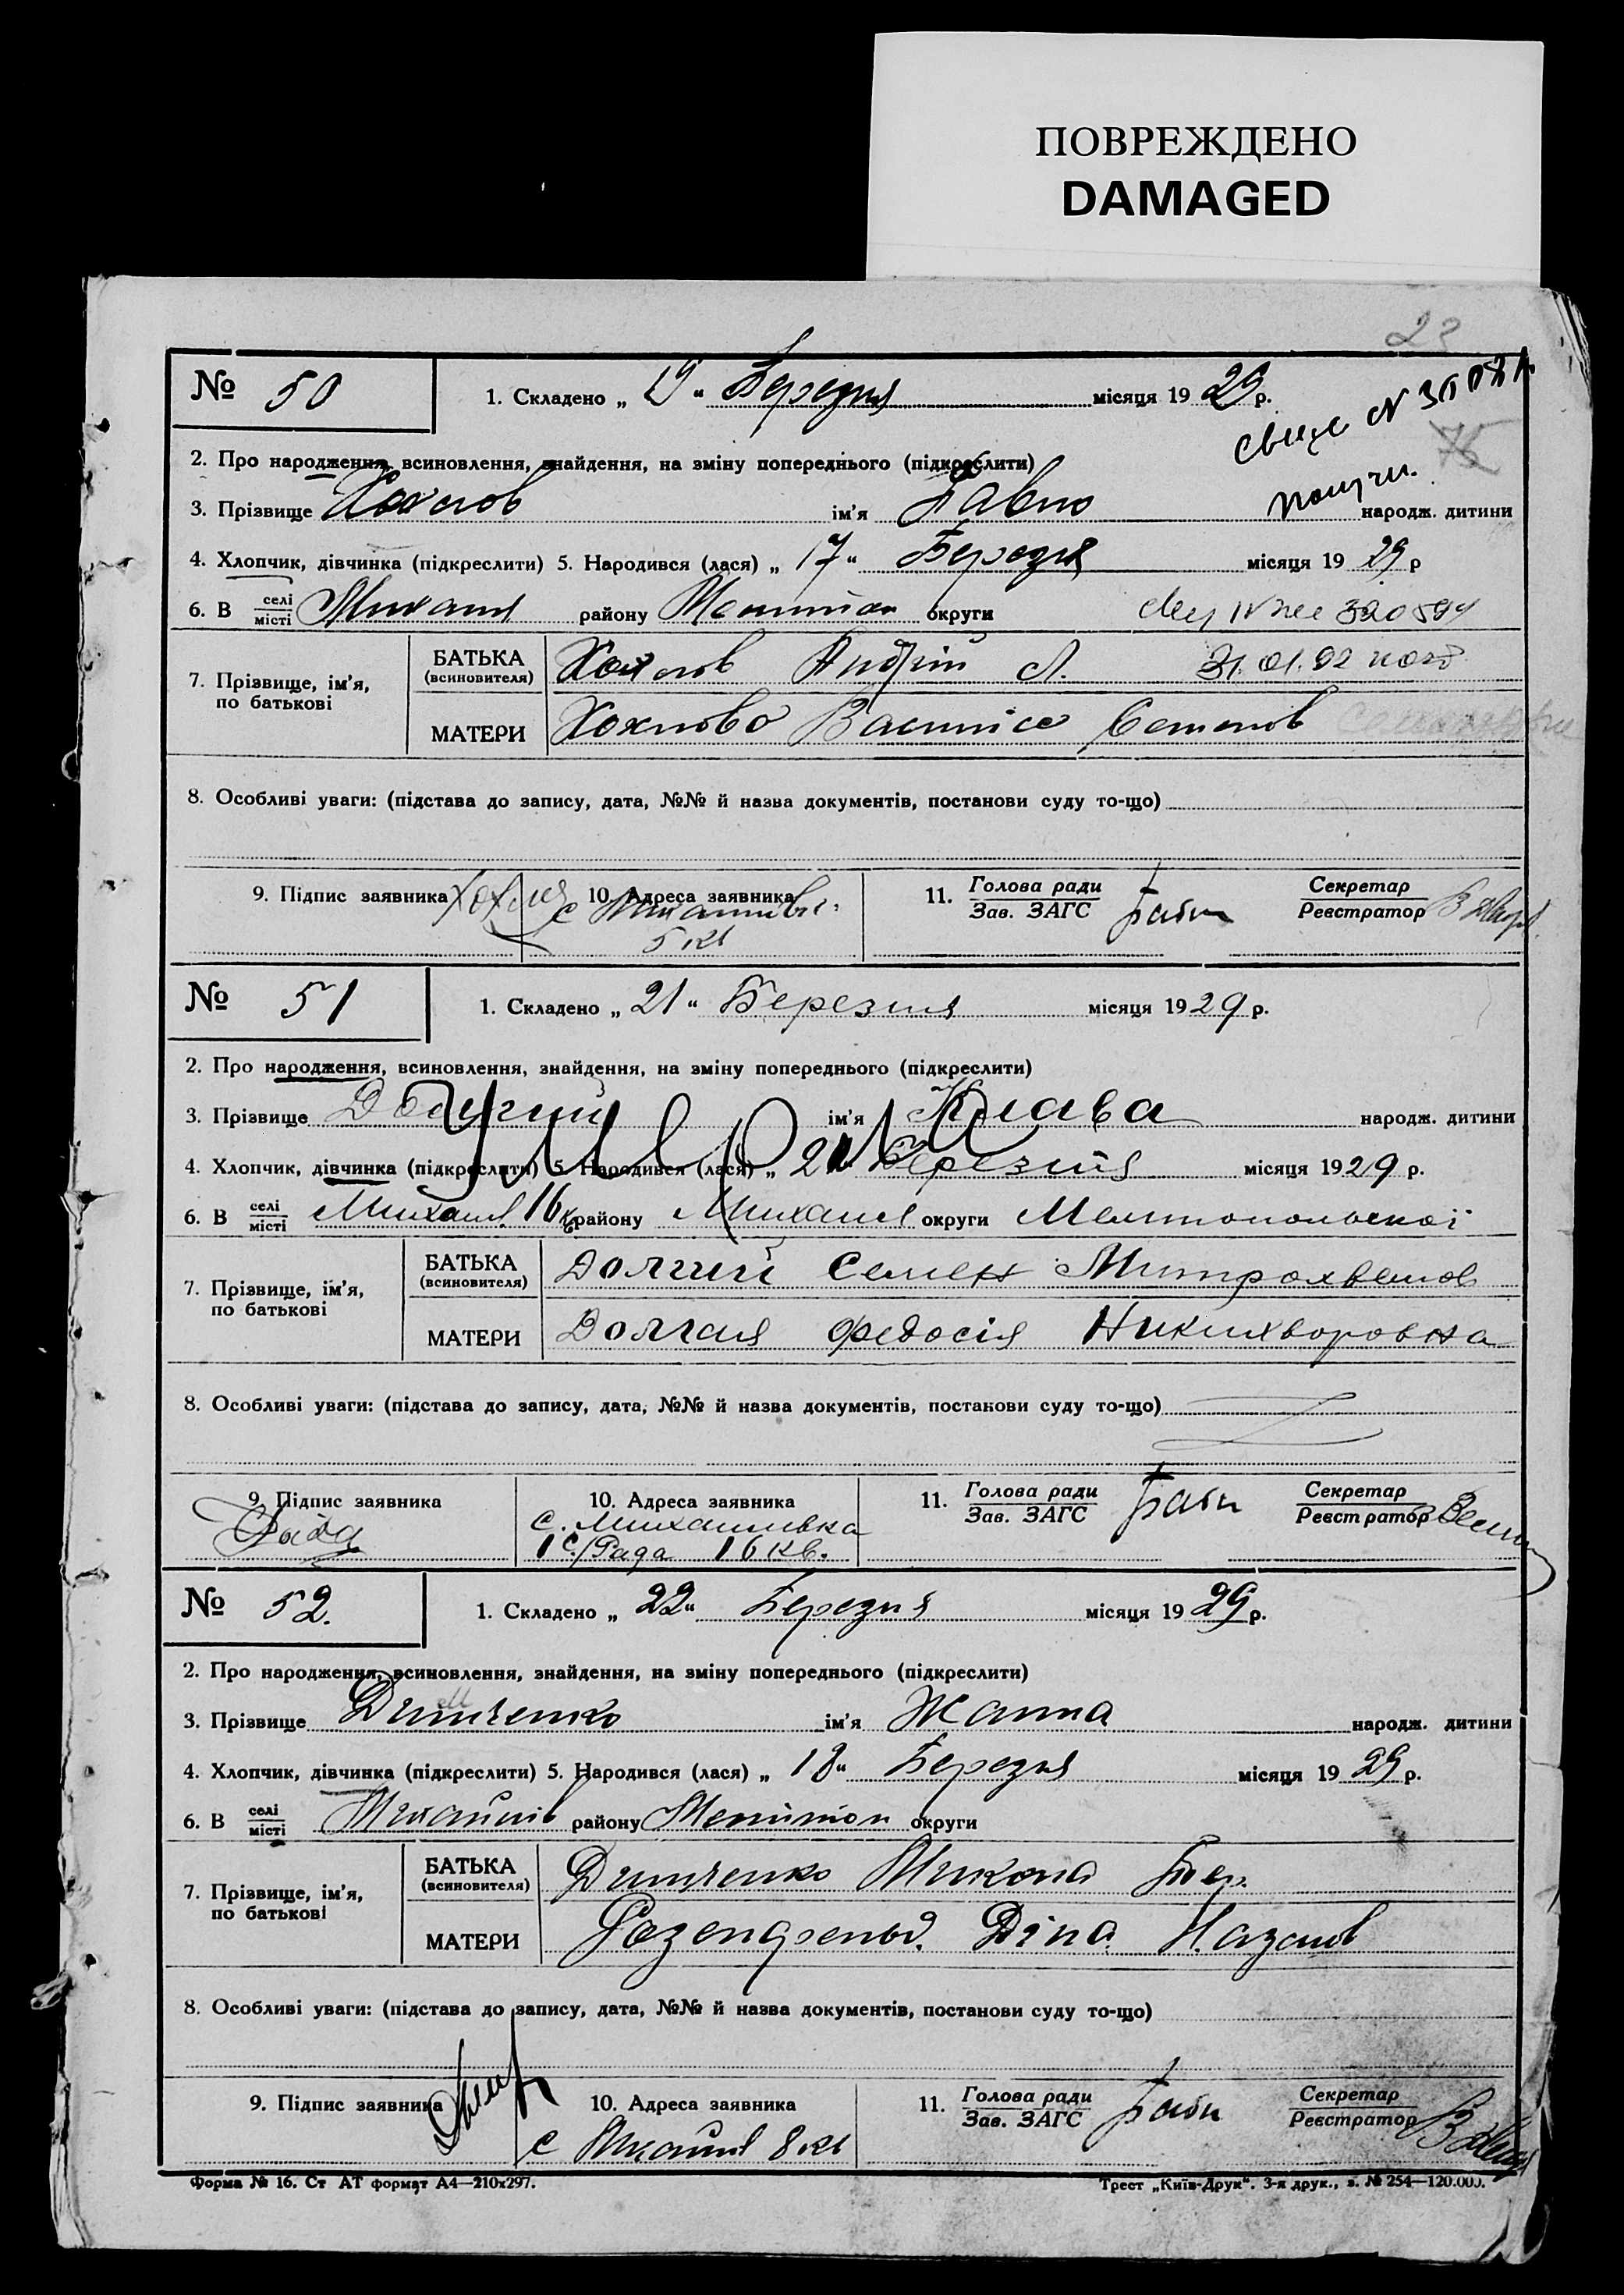 ПОВРЕЖДЕНО
DAMAGED
№ 50 1. Складено „ 19 “ Березня місяця 19 29 р.
2. Про народження, всиновлення, знайдення, на зміну попереднього (підкреслити)
3. Прізвище Хохлов ім’я Павло народж. дитини
4. Хлопчик, дівчинка (підкреслити) 5. Народився (лася) „ 17 “ Березня місяця 19 29 р
6. В селі/місті району округи
7. Прізвище, ім’я, по батькові
БАТЬКА (всиновителя) Хохлов Андрій Л. 31.01.92
МАТЕРИ Хохлова
8. Особливі уваги: (підстава до запису, дата, №№ й назва документів, постанови суду то-що)
9. Підпис заявника 10. Адреса заявника 11. Голова ради/Зав. ЗАГС Секретар/Реєстратор
5 кв
№ 51 1. Складено „ 21 “ Березня місяця 19 29 р.
2. Про народження, всиновлення, знайдення, на зміну попереднього (підкреслити)
3. Прізвище Долгий ім’я Клава народж. дитини
умерла
4. Хлопчик, дівчинка (підкреслити) 5. Народився (лася) „ 21 “ Березня місяця 19 29 р.
6. В селі/місті Михайл. 16 к району Михайл округи Мелитопольскої
7. Прізвище, ім’я, по батькові
БАТЬКА (всиновителя) Долгий Семен Митрохвемов
МАТЕРИ Долгая Федосія Никихворовна
8. Особливі уваги: (підстава до запису, дата, №№ й назва документів, постанови суду то-що)
9. Підпис заявника 10. Адреса заявника 11. Голова ради/Зав. ЗАГС Секретар/Реєстратор
с. Михайливка
1 с/Рада 16 кв.
№ 52. 1. Складено „ 22 “ Березня місяця 19 29 р.
2. Про народження, всиновлення, знайдення, на зміну попереднього (підкреслити)
3. Прізвище Дитченко ім’я Жанна народж. дитини
4. Хлопчик, дівчинка (підкреслити) 5. Народився (лася) „ 18 “ Березня місяця 19 29 р.
6. В селі/місті Михайлів району Мелітоп округи
7. Прізвище, ім’я, по батькові
БАТЬКА (всиновителя) Дитченко Микола
МАТЕРИ Розенфельд. Діна
8. Особливі уваги: (підстава до запису, дата, №№ й назва документів, постанови суду то-що)
9. Підпис заявника 10. Адреса заявника 11. Голова ради/Зав. ЗАГС Секретар/Реєстратор
с Михайлів 8 кв
Форма № 16. Ст АТ формат А4—210х297. Трест „Київ-Друк“. 3-я друк., з. № 254—120.000.